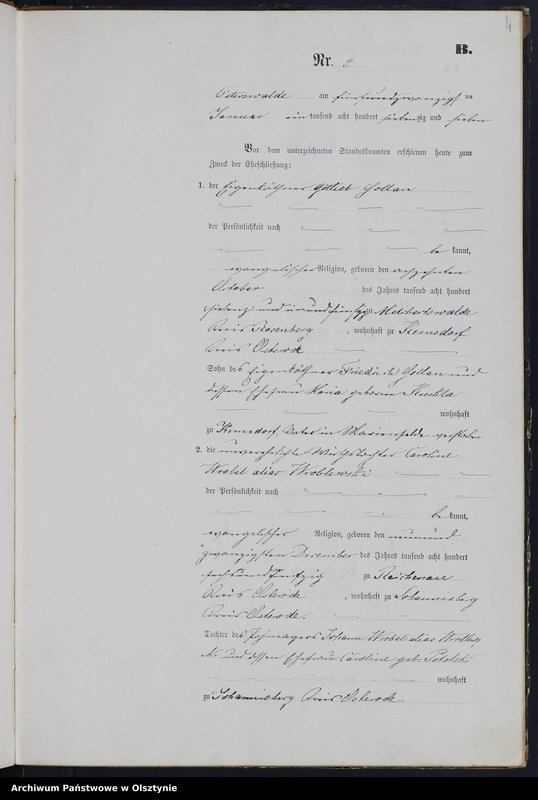 4
B.
Nr. 3
Peterswalde am fünfundzwanzigsten
Januar eintausend acht hundert siebenzig und sieben
Vor dem unterzeichneten Standesbeamten erschienen heute zum
Zweck der Eheschließung:
1. der Eigenkäthner Gottlieb Gollan
der Persönlichkeit nach
bekannt,
evangelischer Religion, geboren den achzehnten
October des Jahres tausend acht hundert
und zu
Kreis Rosenberg, wohnhaft zu Kernsdorf
Kreis Osterode
Sohn des Eigenkäthner Friedrich Gollan und
dessen Ehefrau Maria geborne
wohnhaft
zu Kernsdorf, Vater in Marienfelde verstorben
2. die unverehelichte Wirthstochter Caroline
Wrobel alias Wroblewski
der Persönlichkeit nach
bekannt,
evangelischer Religion, geboren den neunund
zwanzigsten Dezember des Jahres tausend acht hundert
sechsundfünfzig zu Reichenau
Kreis Osterode, wohnhaft zu Johannisberg
Kreis Osterode.
Tochter des Johann Wrobel alias Wroblews
ki und dessen Ehefrau Caroline geb.
wohnhaft
zu Johannisberg Kreis Osterode
Archiwum Państwowe w Olsztynie